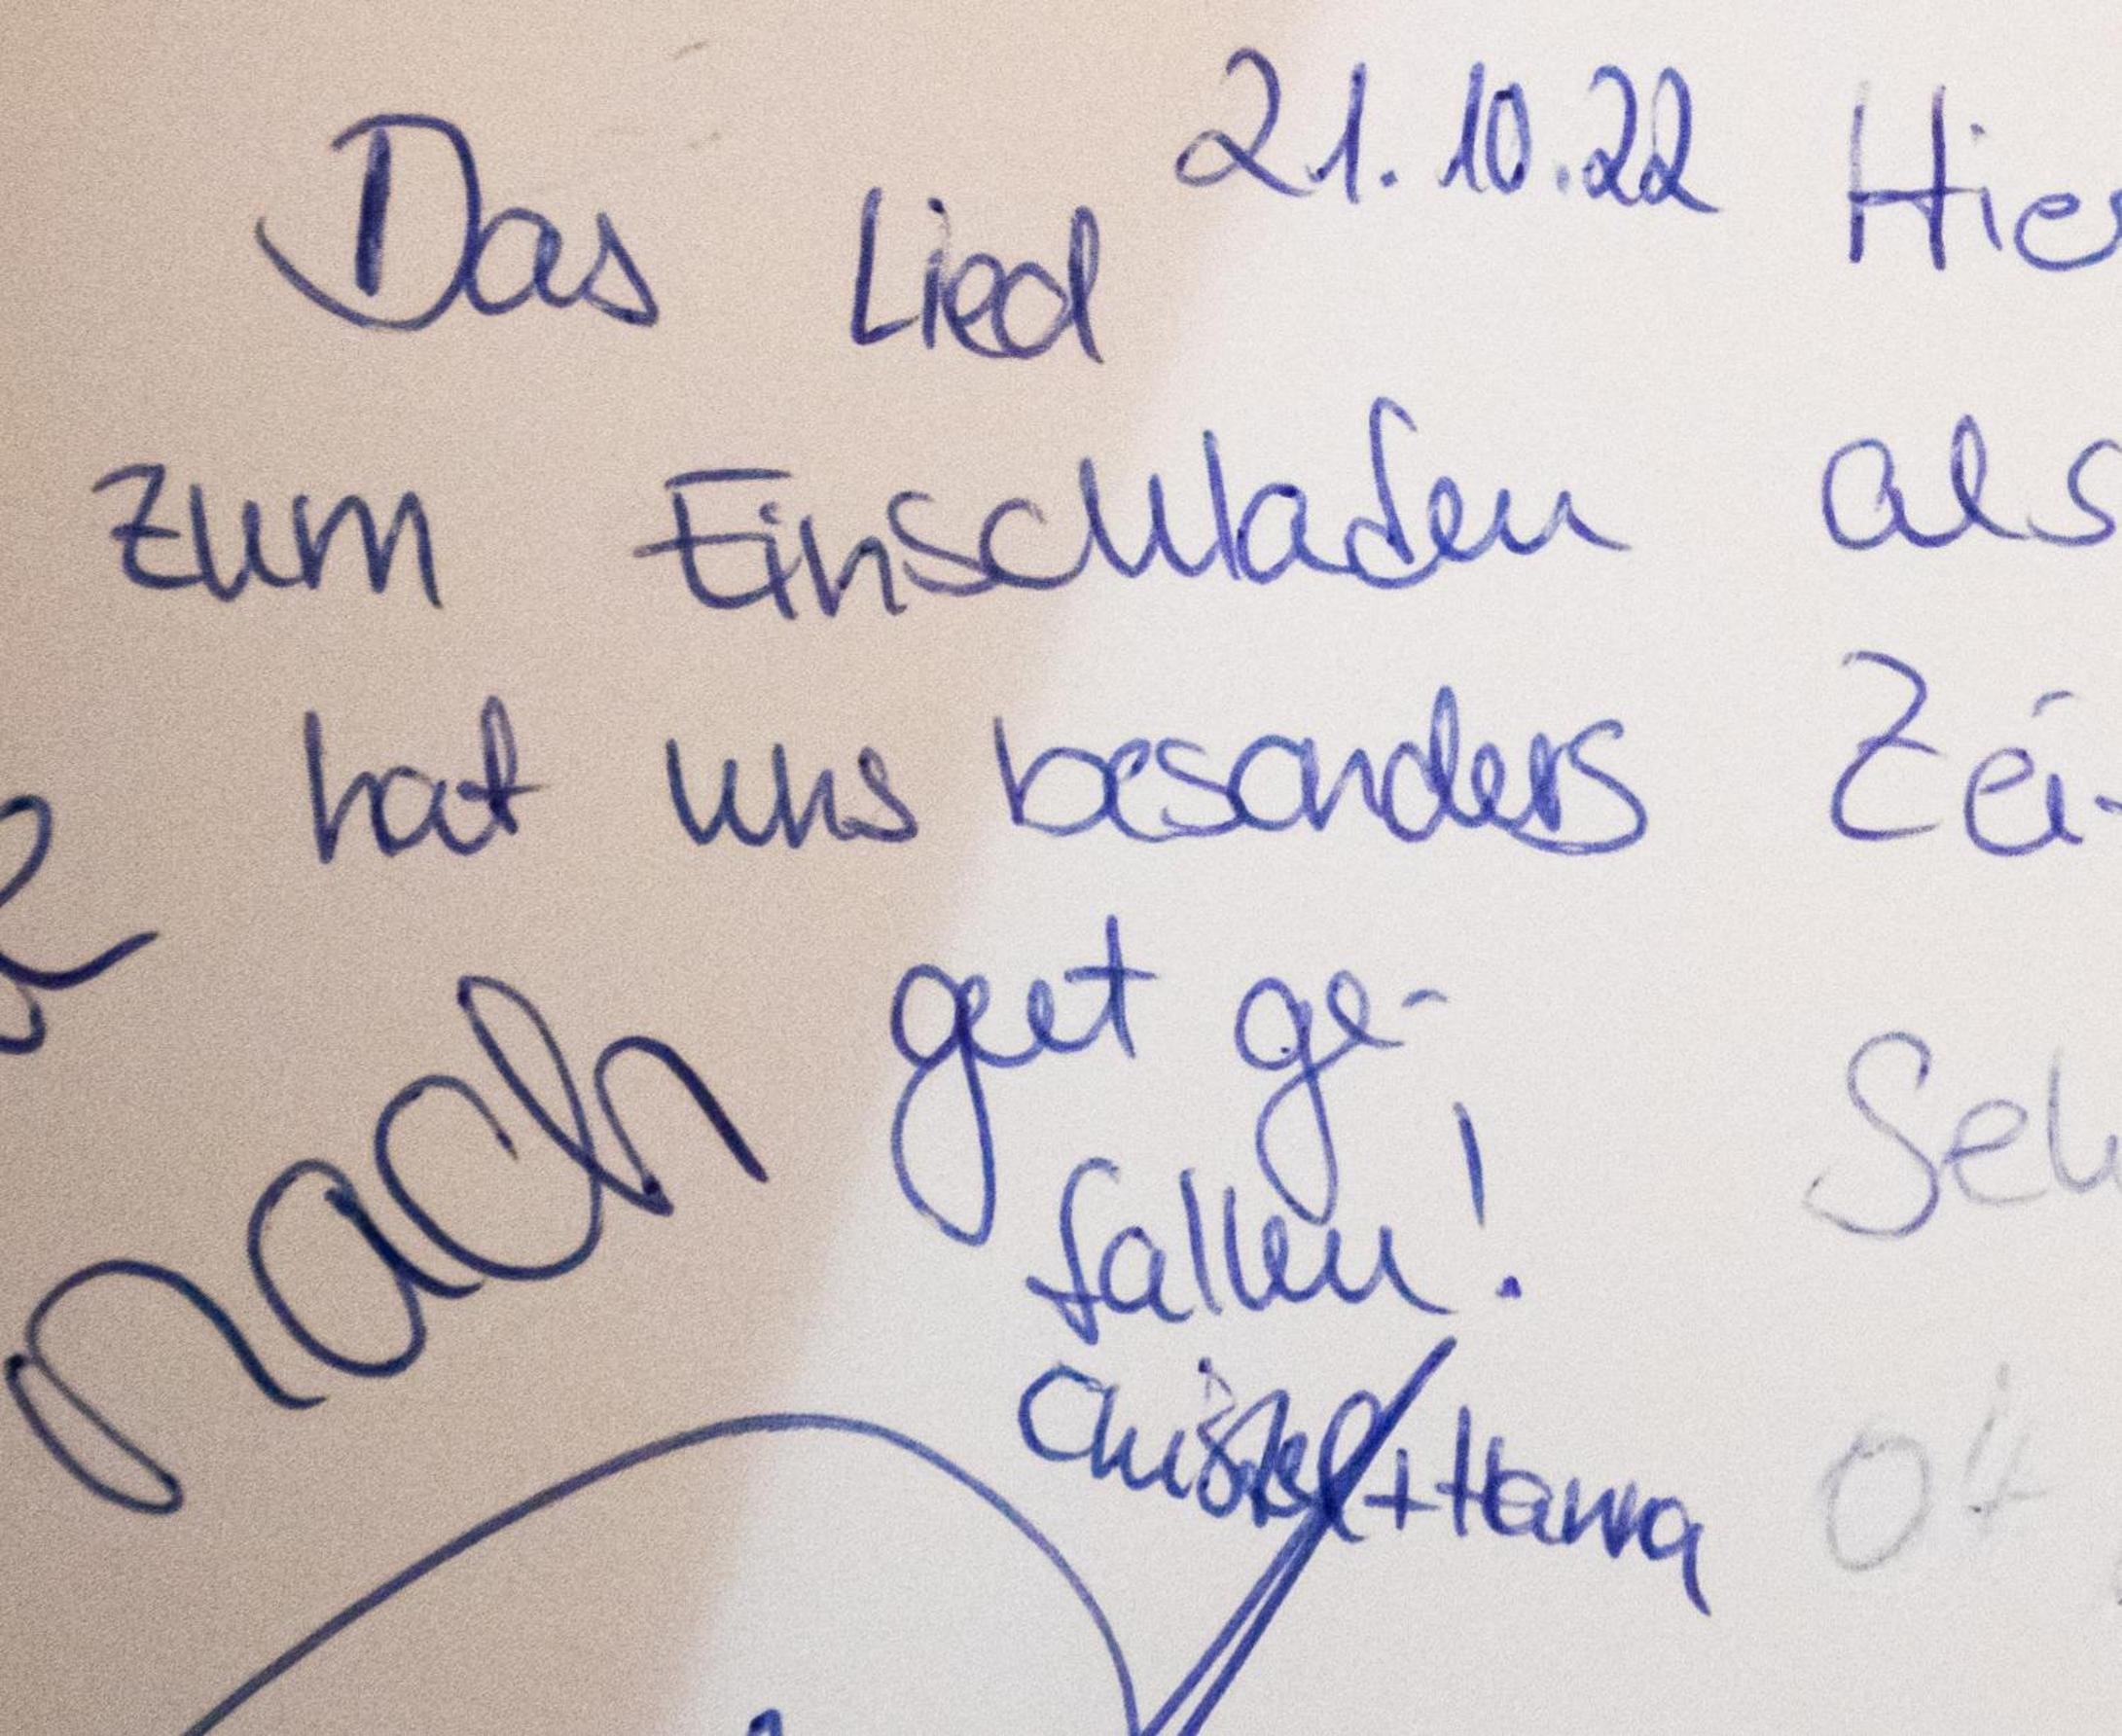 21.10.22
Das Lied
zum Einschlafen
hat uns besonders
gut ge-
fallen!
Christel + Hanna
nach
Hier
als